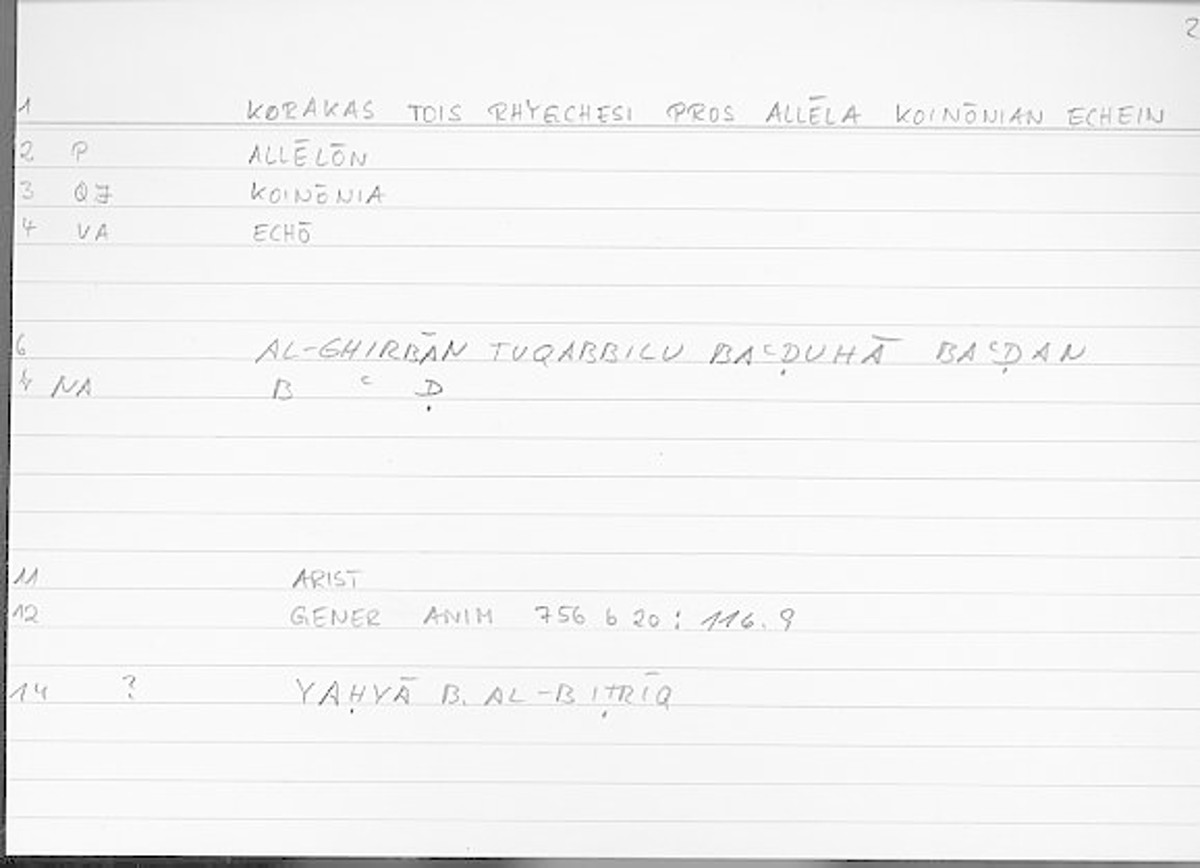 2
1 KORAKAS TOIS RHYGCHESI PROS ALLĒLA KOINŌNIAN ECHEIN
2 P ALLĒLŌN
3 QJ KOINŌNIA
4 VA ECHŌ
6 AL-GHIRBĀN TUQABBILU BAᶜḌUHĀ BAᶜḌAN
NA B ᶜ Ḍ
11 ARIST
12 GENER ANIM 756 b 20 : 116.9
14 ? YAḤYĀ B. AL-BIṬRĪQ